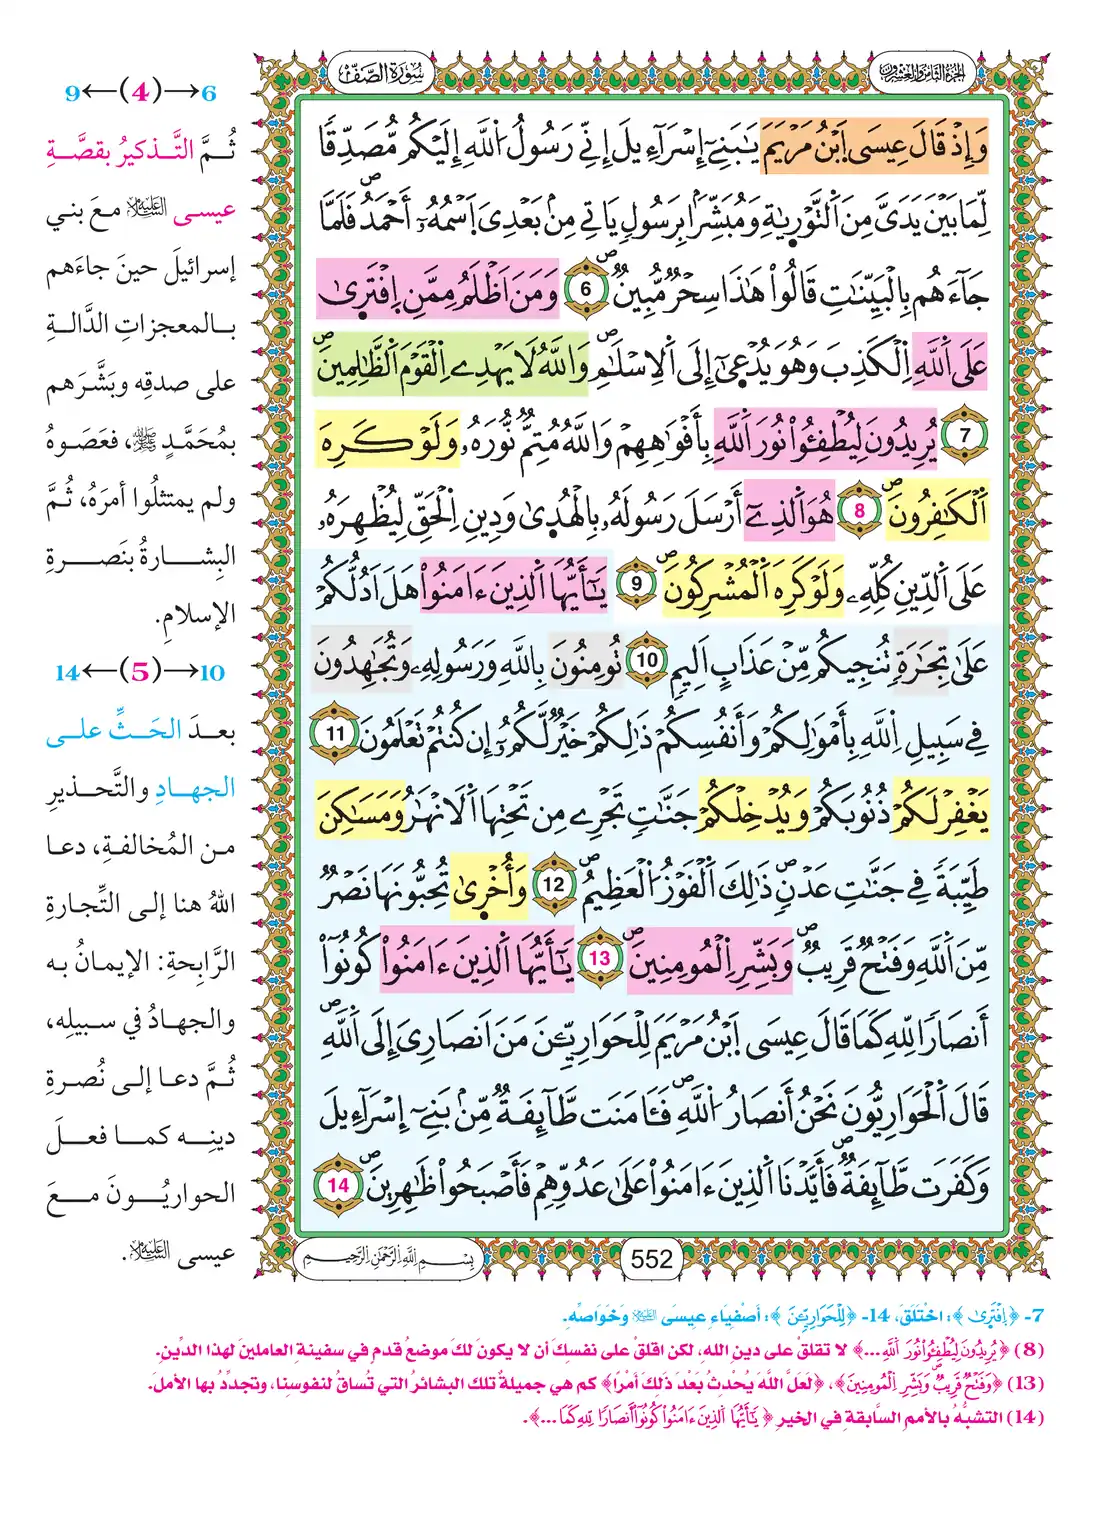 سُورَةُ الصَّفِّ
الجُزْءُ الثَّامِنُ وَالعِشْرُونَ
وَإِذْ قَالَ عِيسَى اَبْنُ مَرْيَمَ يَٰبَنِےٓ إِسْرَآءِيلَ إِنِّے رَسُولُ اُللَّهِ إِلَيْكُم مُّصَدِّقاٗ
لِّمَا بَيْنَ يَدَيَّ مِنَ اَلتَّوْرَيٰةِ وَمُبَشِّراَۢ بِرَسُولٖ يَاتِے مِنۢ بَعْدِيَ اَسْمُهُۥٓ أَحْمَدُۖ فَلَمَّا
جَآءَهُم بِالْبَيِّنَٰتِ قَالُواْ هَٰذَا سِحْرٞ مُّبِينٞۖ 6 وَمَنَ اَظْلَمُ مِمَّنِ اِفْتَر۪ىٰ
عَلَى اَللَّهِ اِلْكَذِبَ وَهُوَ يُدْعَىٰٓ إِلَى اَلِاسْلَٰمِۖ وَاللَّهُ لَا يَهْدِے اِلْقَوْمَ اَلظَّٰلِمِينَۖ
7 يُرِيدُونَ لِيُطْفِـُٔواْ نُورَ اَللَّهِ بِأَفْوَٰهِهِمْ وَاللَّهُ مُتِمّٞ نُّورَهُۥ وَلَوْ كَرِهَ
اَلْكَٰفِرُونَۖ 8 هُوَ اَلذِےٓ أَرْسَلَ رَسُولَهُۥ بِالْهُد۪ىٰ وَدِينِ اِلْحَقِّ لِيُظْهِرَهُۥ
عَلَى اَلدِّينِ كُلِّهِۦ وَلَوْ كَرِهَ اَلْمُشْرِكُونَۖ 9 يَٰٓأَيُّهَا اَلذِينَ ءَامَنُواْ هَلَ اَدُلُّكُمْ
عَلَىٰ تِجَٰرَةٖ تُنجِيكُم مِّنْ عَذَابٍ اَلِيمٖ 10 تُومِنُونَ بِاللَّهِ وَرَسُولِهِۦ وَتُجَٰهِدُونَ
فِے سَبِيلِ اِللَّهِ بِأَمْوَٰلِكُمْ وَأَنفُسِكُمْ ذَٰلِكُمْ خَيْرٞ لَّكُمُۥٓ إِن كُنتُمْ تَعْلَمُونَ 11
يَغْفِرْ لَكُمْ ذُنُوبَكُمْ وَيُدْخِلْكُمْ جَنَّٰتٖ تَجْرِے مِن تَحْتِهَا اَلَانْهَٰرُ وَمَسَٰكِنَ
طَيِّبَةٗ فِے جَنَّٰتِ عَدْنٖۖ ذَٰلِكَ اَلْفَوْزُ اُلْعَظِيمُۖ 12 وَأُخْر۪ىٰ تُحِبُّونَهَا نَصْرٞ
مِّنَ اَللَّهِ وَفَتْحٞ قَرِيبٞۖ وَبَشِّرِ اِلْمُومِنِينَۖ 13 يَٰٓأَيُّهَا اَلذِينَ ءَامَنُواْ كُونُوٓاْ
أَنصَاراٗ لِلهِ كَمَا قَالَ عِيسَى اَبْنُ مَرْيَمَ لِلْحَوَارِيِّـۧنَ مَنَ اَنصَارِيَ إِلَى اَللَّهِۖ
قَالَ اَلْحَوَارِيُّونَ نَحْنُ أَنصَارُ اُللَّهِۖ فَـَٔامَنَت طَّآئِفَةٞ مِّنۢ بَنِےٓ إِسْرَآءِيلَ
وَكَفَرَت طَّآئِفَةٞۖ فَأَيَّدْنَا اَلذِينَ ءَامَنُواْ عَلَىٰ عَدُوِّهِمْ فَأَصْبَحُواْ ظَٰهِرِينَۖ 14
552
بِسْمِ اِللَّهِ اِلرَّحْمَٰنِ اِلرَّحِيمِ
6→(4)←9
ثُمَّ التَّذكيرُ بقصَّةِ
عيسى عليه السلام معَ بني
إسرائيلَ حينَ جاءَهم
بالمعجزاتِ الدَّالةِ
على صدقِه وبَشَّرَهم
بمُحَمَّدٍ ﷺ، فعَصَوهُ
ولم يمتثلُوا أمرَهُ، ثُمَّ
البِشارةُ بنَصرةِ
الإسلامِ.
10→(5)←14
بعدَ الحَثِّ على
الجهادِ والتَّحذيرِ
من المُخالفةِ، دعا
اللهُ هنا إلى التِّجارةِ
الرَّابحةِ: الإيمانُ به
والجهادُ في سبيلِه،
ثُمَّ دعا إلى نُصرةِ
دينِه كما فعلَ
الحواريُّونَ معَ
عيسى عليه السلام.
7- ﴿اِفْتَر۪ىٰ﴾: اخْتَلَقَ، 14- ﴿لِلْحَوَارِيِّـۧنَ﴾: أصْفِيَاءِ عِيسَى عليه السلام وَخَوَاصِّه.
(8) ﴿يُرِيدُونَ لِيُطْفِـُٔواْ نُورَ اَللَّهِ ...﴾ لا تقلقْ على دينِ اللهِ، لكن اقلقْ على نفسكَ أن لا يكون لكَ موضعُ قدمٍ في سفينةِ العاملينَ لهذا الدِّينِ.
(13) ﴿وَفَتْحٞ قَرِيبٞۖ وَبَشِّرِ اِلْمُومِنِينَ﴾، ﴿لَعَلَّ اللَّهَ يُحْدِثُ بَعْدَ ذَلِكَ أَمْرًا﴾ كم هي جميلةٌ تلك البشائرُ التي تُساقُ لنفوسِنا، وتجدِّدُ بها الأملَ.
(14) التشبُّهُ بالأممِ السَّابقةِ في الخيرِ ﴿يَٰٓأَيُّهَا اَلذِينَ ءَامَنُواْ كُونُوٓاْ أَنصَاراٗ لِلهِ كَمَا ...﴾.